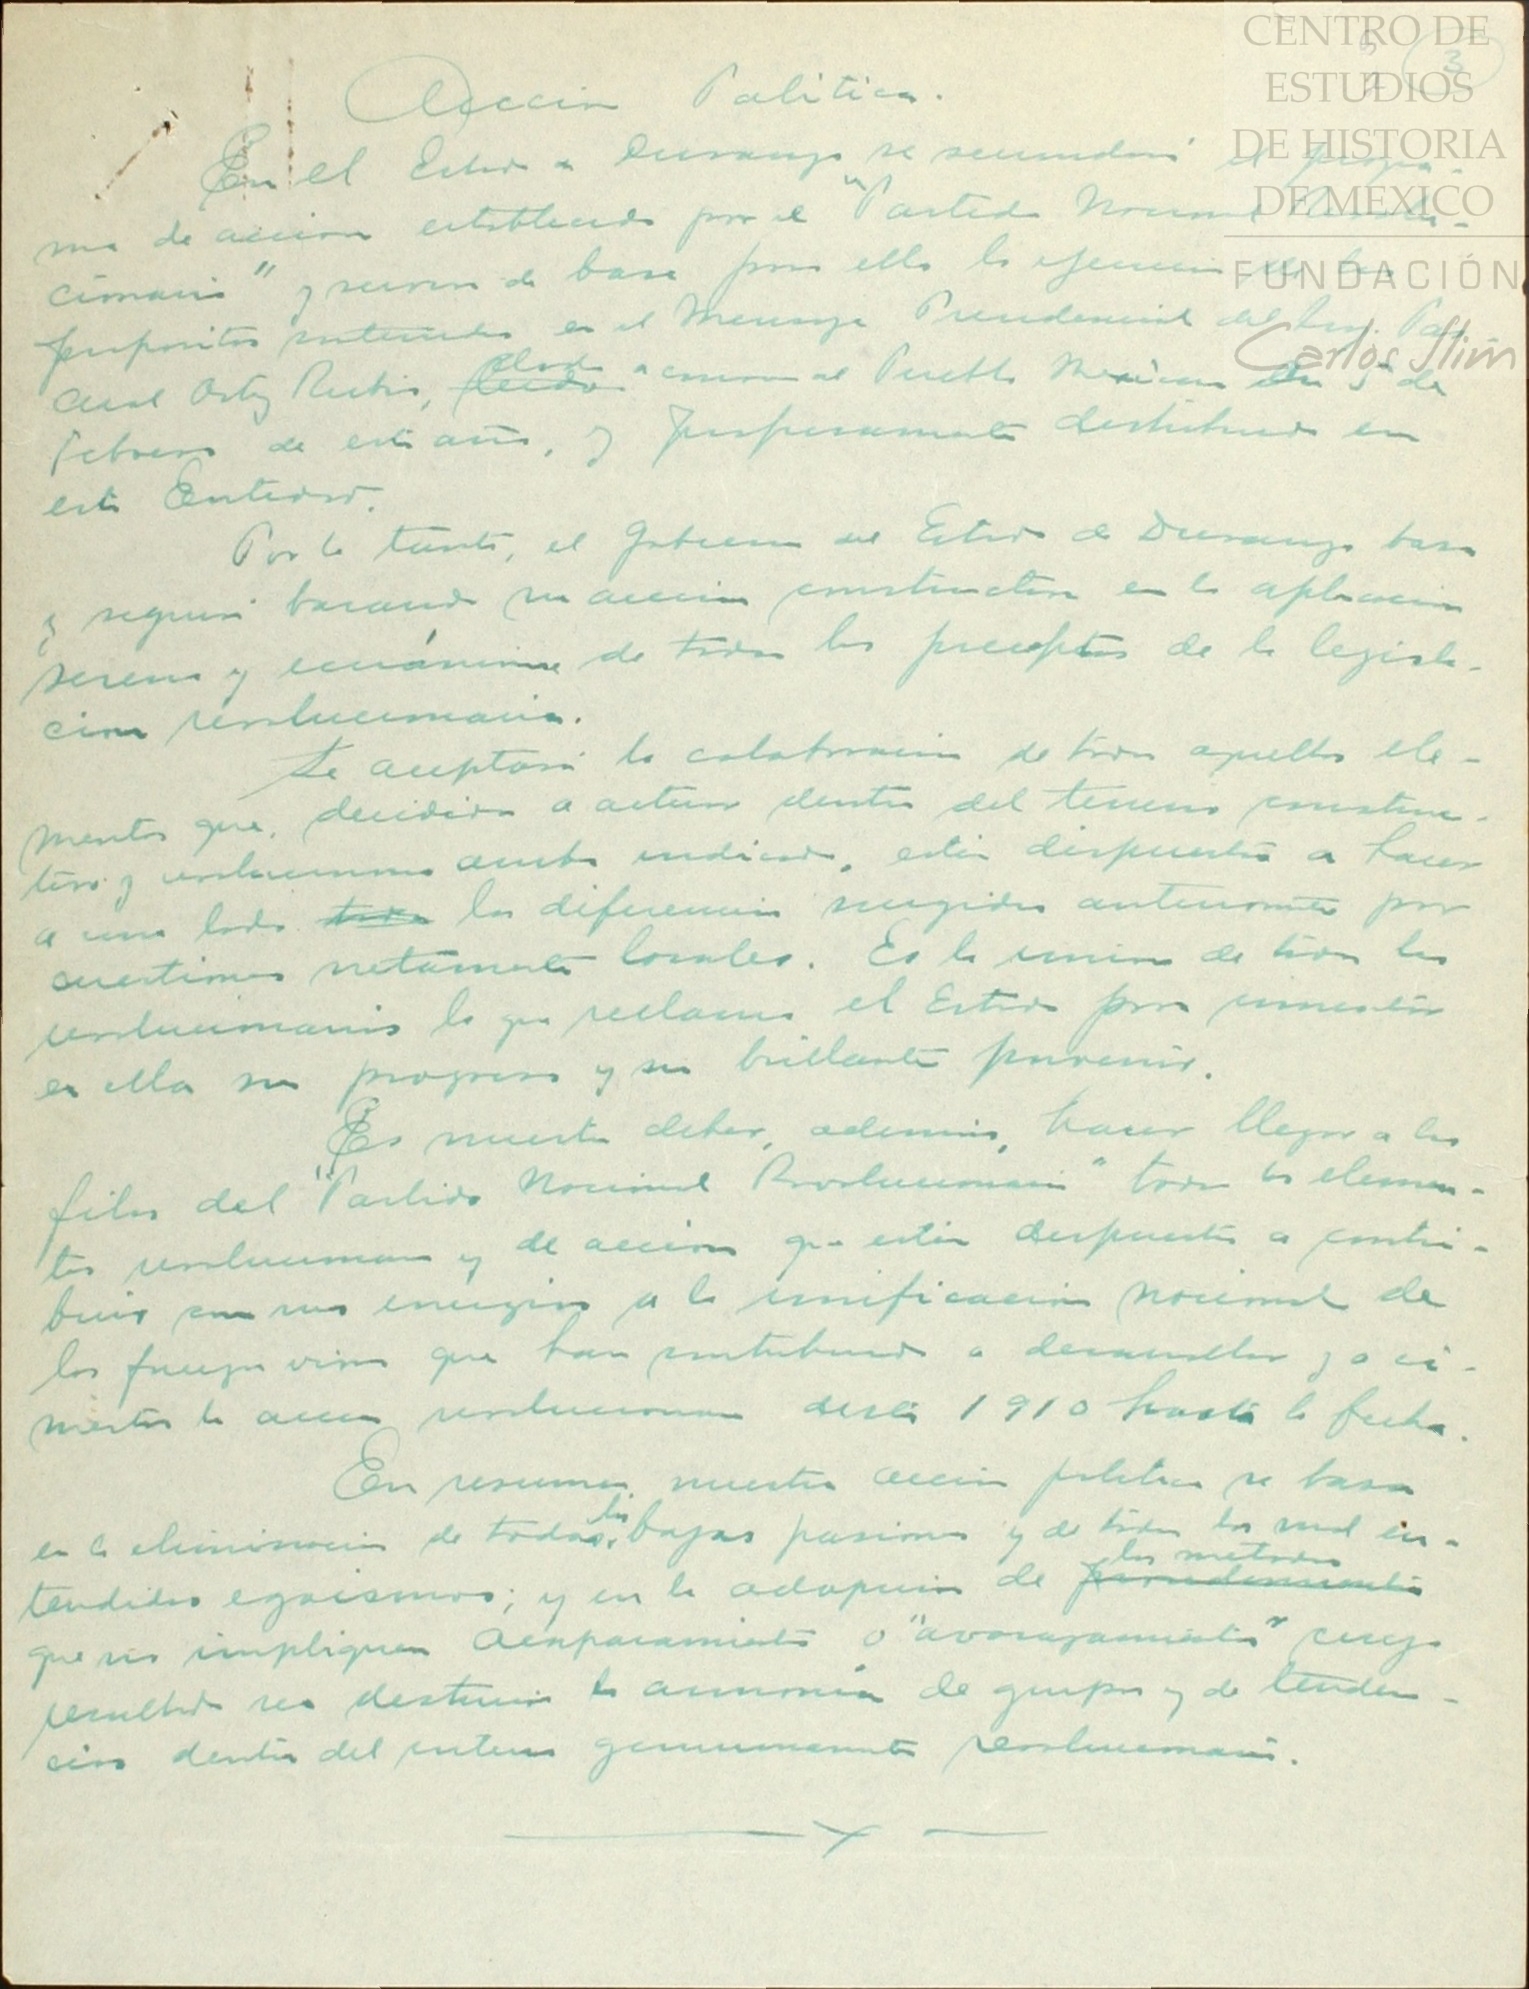 CENTRO DE
ESTUDIOS
DE HISTORIA
DE MEXICO
FUNDACIÓN
Carlos Slim
3
Acción Política.
En el Estado de Durango se secundará el progra-
ma de acción establecido por el "Partido Nacional Revolu-
cionario" y servirá de base para ello la ejecución de los
propósitos contenidos en el Mensaje Presidencial del Ing. Pas
cual Ortiz Rubio, dado a conocer al Pueblo Mexicano en 5 de
Febrero de este año, y profusamente distribuido en
esta Entidad.
Por lo tanto, el Gobierno del Estado de Durango basa
y seguirá basando su acción constructiva en la aplicación
serena y ecuánime de todos los preceptos de la legisla-
ción revolucionaria.
Se aceptará la colaboración de todos aquellos ele-
mentos que, decididos a actuar dentro del terreno construc-
tivo y revolucionario arriba indicado, estén dispuestos a hacer
a un lado las diferencias surgidas anteriormente por
cuestiones netamente locales. Es la unión de todos los
revolucionarios lo que reclama el Estado para cimentar
en ella su progreso y su brillante porvenir.
Es nuestro deber, además, hacer llegar a las
filas del "Partido Nacional Revolucionario" todos los elemen-
tos revolucionarios y de acción que estén dispuestos a contri-
buir con sus energías a la unificación nacional de
las fuerzas vivas que han contribuido a desarrollar y a ci-
mentar la acción revolucionaria desde 1910 hasta la fecha.
En resumen, nuestra acción política se basa
en la eliminación de todas las bajas pasiones y de todos los mal en-
tendidos egoísmos; y en la adopción de los métodos
que no impliquen acaparamiento o "avorazamiento" cuyo
resultado sea destruir la armonía de grupos y de tenden-
cias dentro del criterio genuinamente revolucionario.